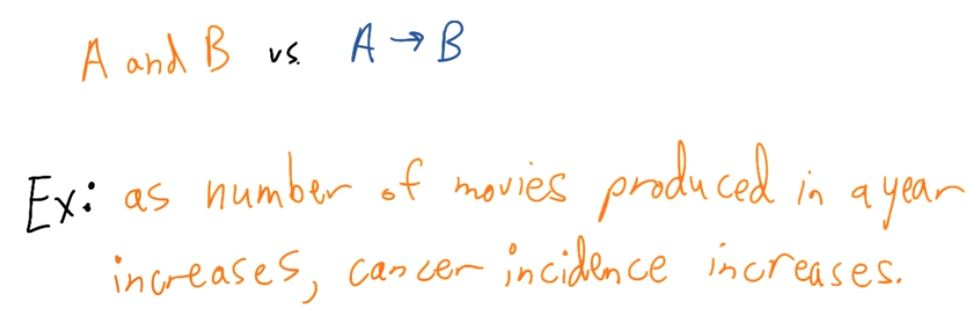 A and B vs. A → B
Ex: as number of movies produced in a year
increases, cancer incidence increases.